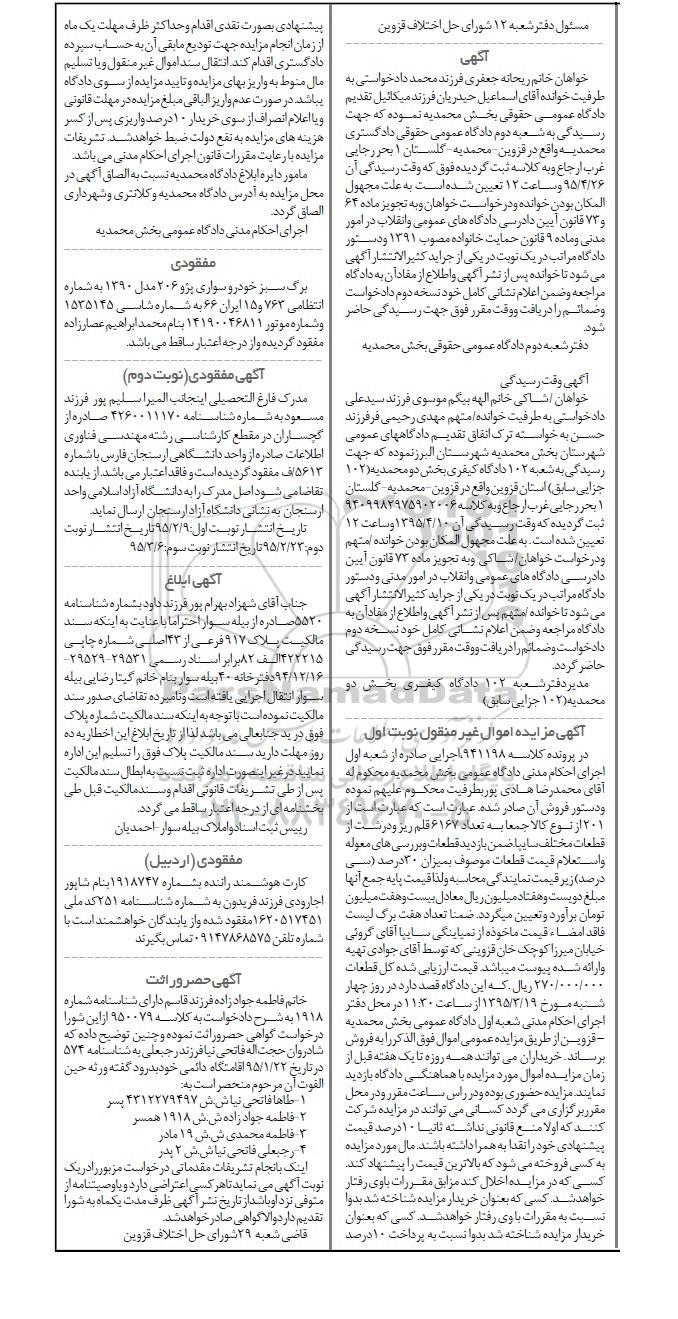 مسئول دفتر شعبه ۱۲ شورای حل اختلاف قزوین
آگهی
خواهان خانم ریحانه جعفری فرزند محمد دادخواستی به
طرفیت خوانده آقای اسماعیل حیدریان فرزند میکائیل تقدیم
دادگاه عمومی حقوقی بخش محمدیه نموده که جهت
رسیدگی به شعبه دوم دادگاه عمومی حقوقی دادگستری
محمدیه واقع در قزوین-محمدیه-گلستان ۱ بحر رجایی
غرب ارجاع وبه کلاسه ثبت گردیده فوق که وقت رسیدگی آن
۹۵/۴/۲۶ وساعت ۱۲ تعیین شده است به علت مجهول
المکان بودن خوانده ودرخواست خواهان وبه تجویز ماده ۶۴
و۷۳ قانون آیین دادرسی دادگاه های عمومی وانقلاب در امور
مدنی وماده ۹ قانون حمایت خانواده مصوب ۱۳۹۱ ودستور
دادگاه مراتب در یک نوبت در یکی از جراید کثیرالانتشار آگهی
می شود تا خوانده پس از نشر آگهی واطلاع از مفادآن به دادگاه
مراجعه وضمن اعلام نشانی کامل خود نسخه دوم دادخواست
وضمائم را دریافت ووقت مقرر فوق جهت رسیدگی حاضر
شود.
دفتر شعبه دوم دادگاه عمومی حقوقی بخش محمدیه
آگهی وقت رسیدگی
خواهان /شاکی خانم الهه بیگم موسوی فرزند سیدعلی
دادخواستی به طرفیت خوانده/متهم مهدی رحیمی فرفرزند
حسن به خواسته ترک انفاق تقدیم دادگاههای عمومی
شهرستان بخش محمدیه شهرستان البرز نموده که جهت
رسیدگی به شعبه ۱۰۲ دادگاه کیفری بخش دو محمدیه(۱۰۲
جزایی سابق) استان قزوین واقع در قزوین-محمدیه-گلستان
۱ بحر رجایی غرب ارجاع وبه کلاسه ۹۴۰۹۹۸۲۹۷۵۹۰۲۰۰۶
ثبت گردیده که وقت رسیدگی آن ۱۳۹۵/۴/۱۰ وساعت ۱۲
تعیین شده است. به علت مجهول المکان بودن خوانده/متهم
ودرخواست خواهان/شاکی وبه تجویز ماده ۷۳ قانون آیین
دادرسی دادگاه های عمومی وانقلاب در امور مدنی ودستور
دادگاه مراتب در یک نوبت در یکی از جراید کثیرالانتشار آگهی
می شود تا خوانده /متهم پس از نشر آگهی واطلاع از مفادآن به
دادگاه مراجعه وضمن اعلام نشانی کامل خود نسخه دوم
دادخواست وضمائم را دریافت ووقت مقرر فوق جهت رسیدگی
حاضر گردد.
مدیر دفتر شعبه ۱۰۲ دادگاه کیفری بخش دو
محمدیه(۱۰۲ جزایی سابق)
آگهی مزایده اموال غیر منقول نوبت اول
در پرونده کلاسه ۹۴۱۱۹۸اجرایی صادره از شعبه اول
اجرای احکام مدنی دادگاه عمومی بخش محمدیه محکوم له
آقای محمدرضا هادی پور بطرفیت محکوم علیهم نموده
ودستور فروش آن صادر شده. عبارت است که عبارت است از
۲۰۱ از نوع کالا جمعا به تعداد ۶۱۶۷قلم ریز ودرشت از
قطعات مختلف سایپا ضمن بازدید قطعات وبررسی های معوله
واستعلام قیمت قطعات موصوف بمیزان ۳۰درصد (سی
درصد) زیر قیمت نمایندگی محاسبه ولذا قیمت پایه جمع آنها
مبلغ دویست وهفتاد میلیون ریال معادل بیست وهفت میلیون
تومان برآورد وتعیین میگردد. ضمنا تعداد هفت برگ لیست
فاقد امضاء قیمت ماخوذه از نمیاینگی سایپا آقای گروئی
خیابان میرزا کوچک خان قزوینی که توسط آقای جوادی تهیه
وارائه شده پیوست میباشد. قیمت ارزیابی شده کل قطعات
۲۷۰/۰۰۰/۰۰۰ ریال. که این دادگاه قصد دارد در روز چهار
شنبه مورخ ۱۳۹۵/۳/۱۹ از ساعت ۱۱:۳۰ در محل دفتر
اجرای احکام مدنی شعبه اول دادگاه عمومی بخش محمدیه
–قزوین از طریق مزایده عمومی اموال فوق الذکر را به فروش
برساند. خریداران می توانند همه روزه تا یک هفته قبل از
زمان مزایده اموال مورد مزایده با هماهنگی دادگاه بازدید
نمایند. مزایده حضوری بوده ودر راس ساعت مقرر ودر محل
مقرر برگزاری می گردد کسانی می توانند در مزایده شرکت
کنند که اولا منع قانونی نداشته ثانیا ۱۰درصد قیمت
پیشنهادی خود را نقدا به همراه داشته باشند. مال مورد مزایده
به کسی فروخته می شود که بالاترین قیمت را پیشنهاد کند.
کسی که در مزایده اخلال کند مزابق مقررات باوی رفتار
خواهدشد. کسی که بعنوان خریدار مزایده شناخته شد بدوا
نسبت به مقررات با وی رفتار خواهدشد. کسی که بعنوان
خریدار مزایده شناخته شد بدوا نسبت به پرداخت ۱۰درصد
پیشنهادی بصورت نقدی اقدام وحداکثر ظرف مهلت یک ماه
از زمان انجام مزایده جهت تودیع مابقی آن به حساب سپرده
دادگستری اقدام کند. انتقال سند اموال غیر منقول ویا تسلیم
مال منوط به واریز بهای مزایده و تایید مزایده از سوی دادگاه
یباشد. در صورت عدم واریز الباقی مبلغ مزایده در مهلت قانونی
ویا اعلام انصراف از سوی خریدار ۱۰درصد واریزی پس از کسر
هزینه های مزایده به نفع دولت ضبط خواهدشد. تشریفات
مزایده با رعایت مقررات قانون اجرای احکام مدنی می باشد.
مامور دایره ابلاغ دادگاه محمدیه نسبت به الصاق آگهی در
محل مزایده به آدرس دادگاه محمدیه وکلانتری وشهرداری
الصاق گردد.
اجرای احکام مدنی دادگاه عمومی بخش محمدیه
مفقودی
برگ سبز خودرو سواری پژو ۲۰۶ مدل ۱۳۹۰ به شماره
انتظامی ۷۶۳ و۱۵ ایران ۶۶ به شماره شاسی ۱۵۳۵۱۴۵
وشماره موتور ۱۴۱۹۰۰۴۶۸۱۱ بنام محمدابراهیم عصارزاده
مفقود گردیده و از درجه اعتبار ساقط می باشد.
آگهی مفقودی(نوبت دوم)
مدرک فارغ التحصیلی اینجانب المیرا سلیم پور فرزند
مسعود به شماره شناسنامه ۴۲۶۰۰۱۱۱۷۰ صادره از
گچساران در مقطع کارشناسی رشته مهندسی فناوری
اطلاعات صادره از واحد دانشگاهی ارسنجان فارس با شماره
۵۶۱۳/ف مفقود گردیده است و فاقد اعتبار می باشد. از یابنده
تقاضا می شود اصل مدرک را به دانشگاه آزاد اسلامی واحد
ارسنجان به نشانی دانشگاه آزاد ارسنجان ارسال نماید.
تاریخ انتشار نوبت اول:۹۵/۲/۹تاریخ انتشار نوبت
دوم:۹۵/۲/۲۳تاریخ انتشار نوبت سوم:۹۵/۳/۶
آگهی ابلاغ
جناب آقای شهزاد بهرام پور فرزند داود بشماره شناسنامه
۵۵۲۰صادره از بیله سوار احتراما با عنایت به اینکه سند
مالکیت پلاک ۹۱۷ فرعی از ۴۳اصلی شماره چاپی
۴۲۲۲۱۵الف ۸۲برابر اسناد رسمی ۲۹۵۳۱-۲۹۵۲۹-
۹۴/۱۲/۱۶دفترخانه ۴۰بیله سوار بنام خانم گیتا رضایی بیله
سوار انتقال اجرایی یافته است ونامبرده تقاضای صدور سند
مالکیت نموده است با توجه به اینکه سند مالکیت شماره پلاک
فوق در ید جنابعالی می باشد لذا از تاریخ ابلاغ این اخطاریه ده
روز مهلت دارید سند مالکیت پلاک فوق را تسلیم این اداره
نمایید در غیر اینصورت اداره ثبت نسبت به ابطال سند مالکیت
پس از طی تشریفات قانونی اقدام وسند مالکیت قبل طی
بخشنامه ای از درجه اعتبار ساقط می گردد.
رییس ثبت اسناد واملاک بیله سوار-احمدیان
مفقودی (اردبیل)
کارت هوشمند راننده بشماره ۱۹۱۸۷۴۷بنام شاپور
اجارودی فرزند فریدون به شماره شناسنامه ۲۵۱کد ملی
۱۶۲۰۵۱۷۴۵۱مفقود شده واز یابندگان خواهشمند است با
شماره تلفن ۰۹۱۴۷۸۶۸۵۷۵تماس بگیرند
آگهی حصر وراثت
خانم فاطمه جواد زاده فرزند قاسم دارای شناسنامه شماره
۱۹۱۸ به شرح دادخواست به کلاسه ۹۵۰۰۷۹ از این شورا
درخواست گواهی حصر وراثت نموده و چنین توضیح داده که
شادروان حجت اله فاتحی نیا فرزند رجبعلی به شناسنامه ۵۷۴
در تاریخ ۹۵/۱/۲۲ اقامتگاه دائمی خود بدرود گفته ورثه حین
الفوت آن مرحوم منحصر است به:
۱-طاها فاتحی نیا ش.ش ۴۳۱۲۲۷۹۴۹۷ پسر
۲-فاطمه جواد زاده ش.ش ۱۹۱۸ همسر
۳-فاطمه محمدی ش.ش ۱۹ مادر
۴-رجبعلی فاتحی نیا ش.ش ۲ پدر
اینک با انجام تشریفات مقدماتی درخواست مزبور را در یک
نوبت آگهی می نماید تا هر کسی اعتراضی دارد و یا وصیتنامه از
متوفی نزد او باشد از تاریخ نشر آگهی ظرف مدت یکماه به شورا
تقدیم دارد والا گواهی صادر خواهدشد.
قاضی شعبه ۲۹ شورای حل اختلاف قزوین
ParsNamadData